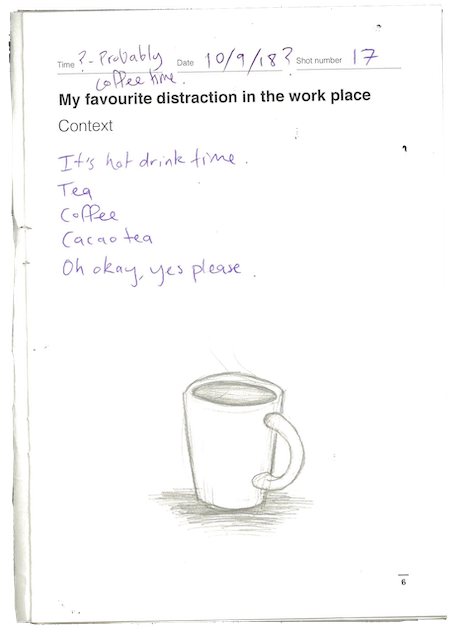 Time ? - Probably coffee time. Date 10/9/18? Shot number 17
My favourite distraction in the work place
Context
It's hot drink time.
Tea
Coffee
Cacao tea
Oh okay, yes please.
6